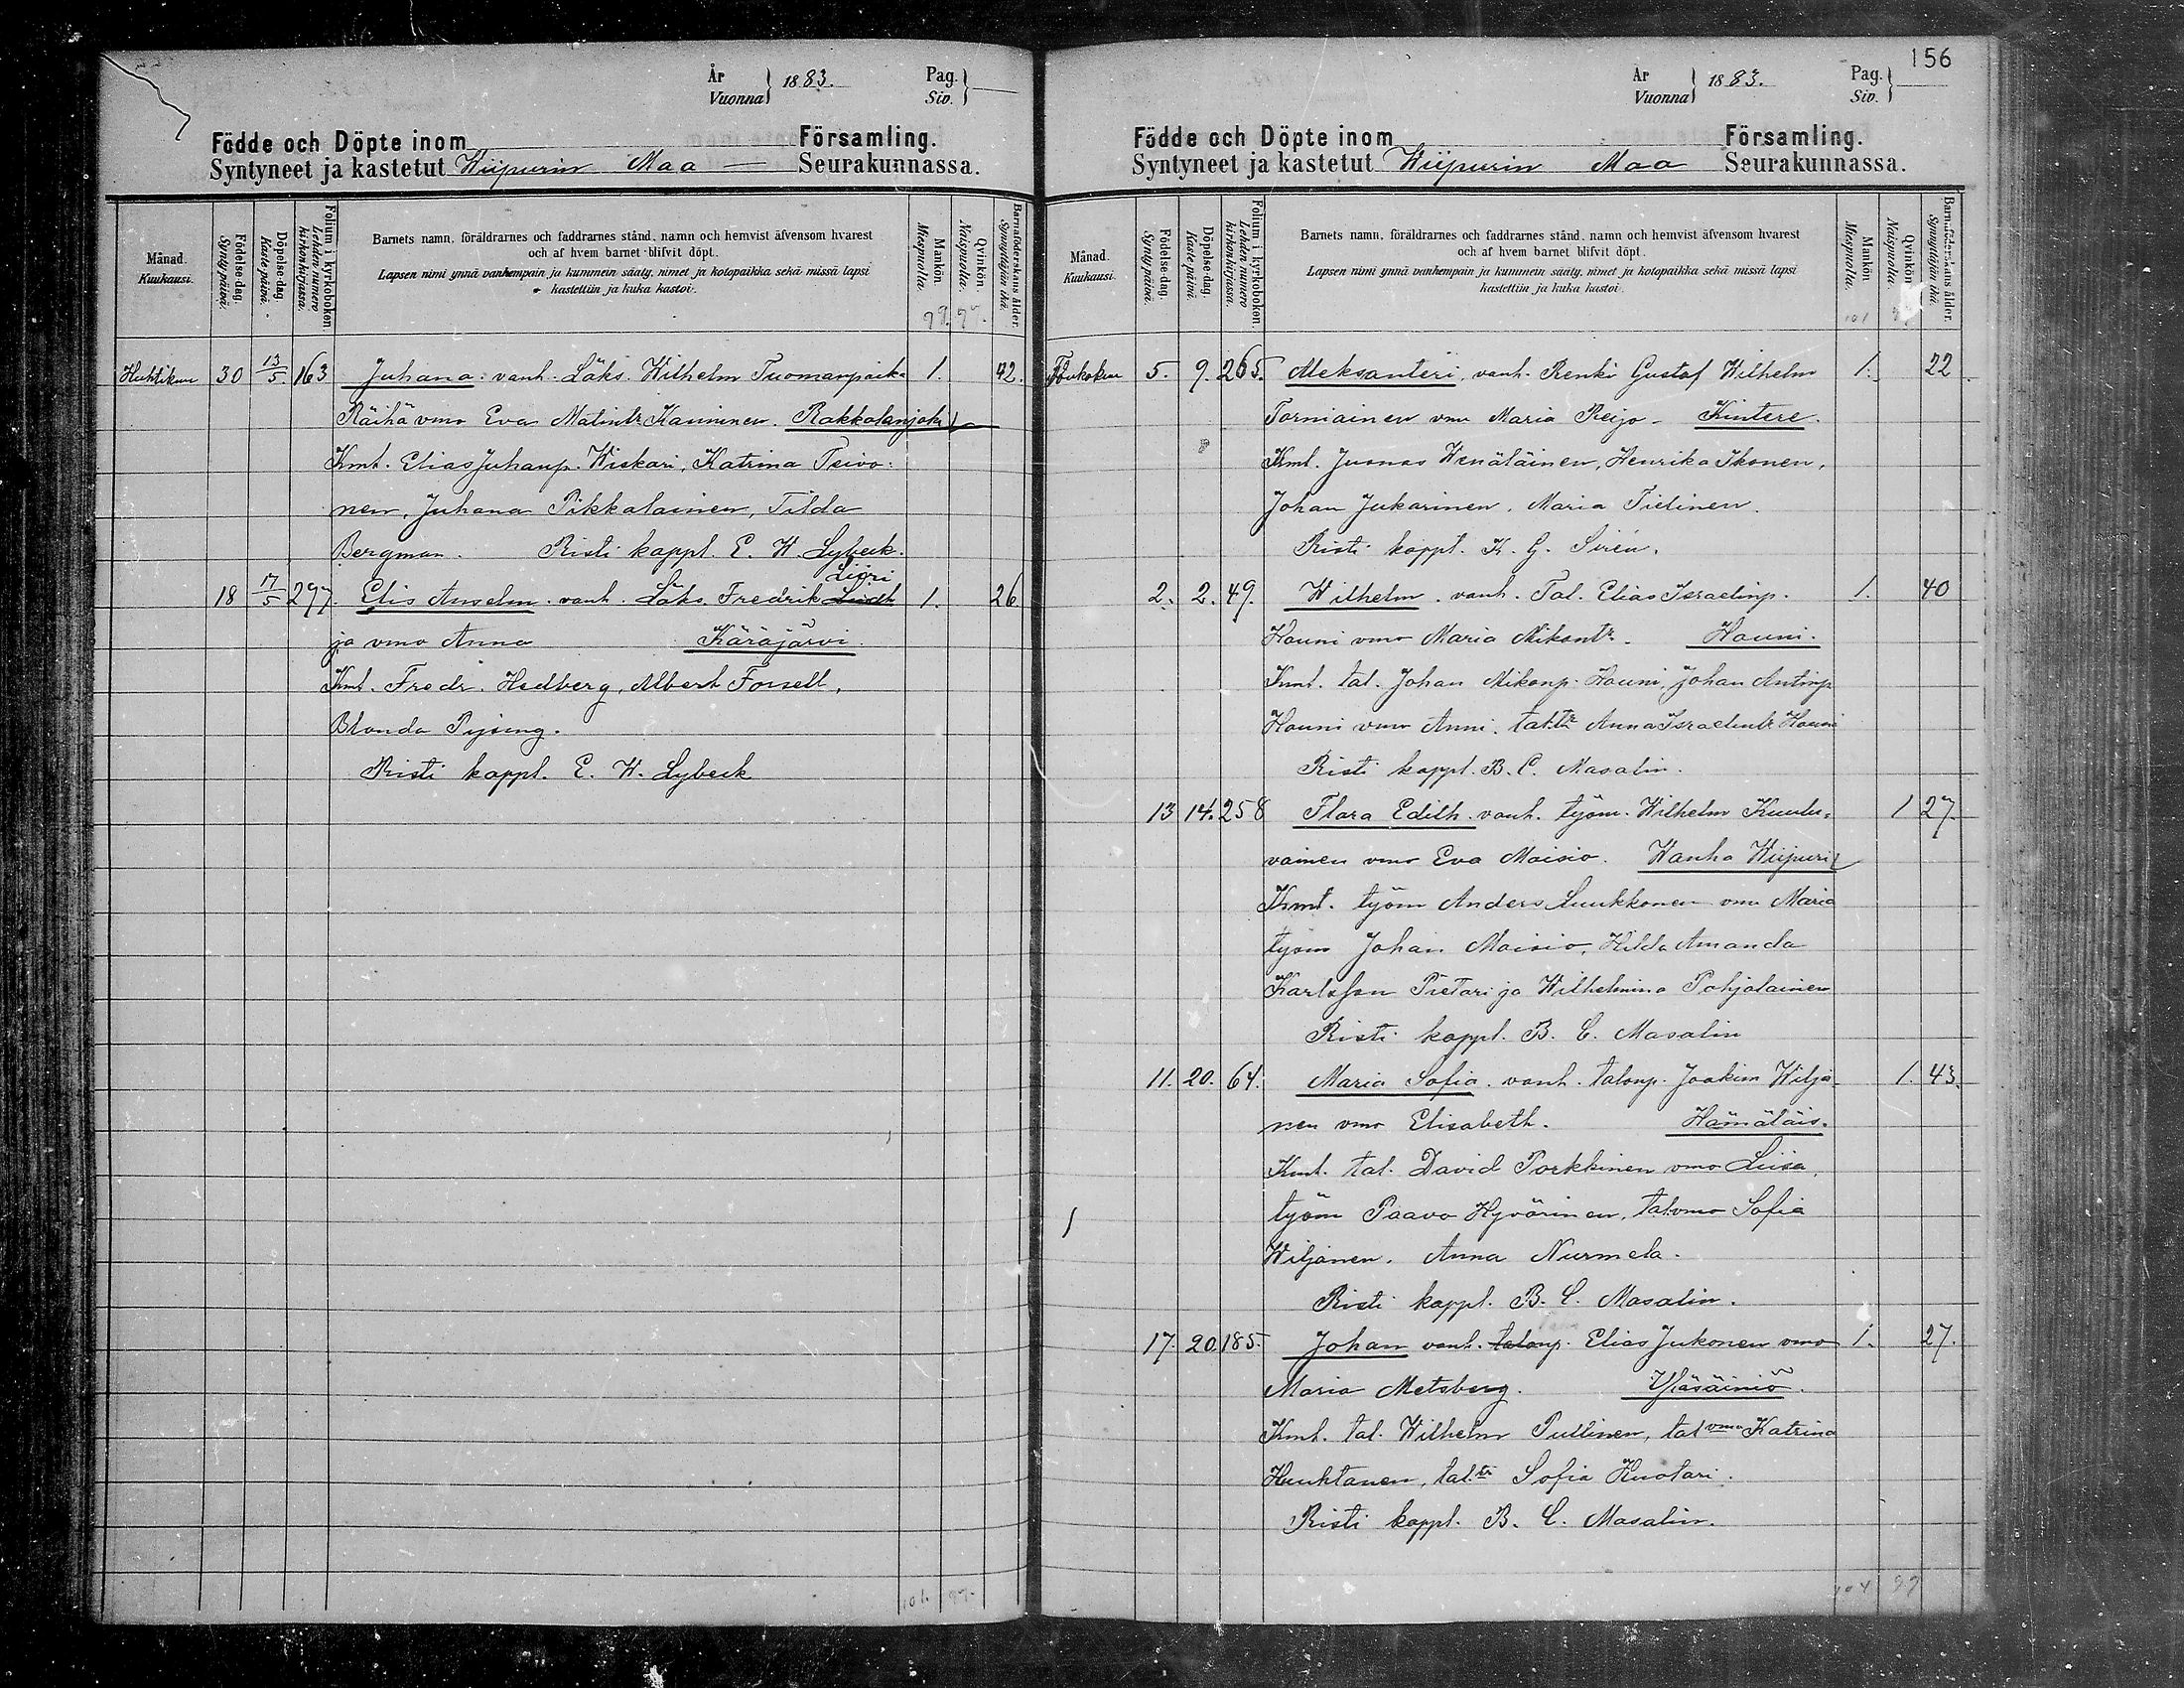 År
Vuonna } 1883.
Pag.
Siv. }
Födde och Döpte inom Församling.
Syntyneet ja kastetut Wiipurin Maa — Seurakunnassa.
Månad.
Kuukausi.
Födelse-dag.
Syntypäivä.
Döpelse-dag.
Kaste-päivä.
Folium i kyrkoboken.
Lehden numero
kirkonkirjassa.
Barnets namn, föräldrarnes och faddrarnes stånd, namn och hemvist äfvensom hvarest
och af hvem barnet blifvit döpt.
Lapsen nimi ynnä vanhempain ja kummein sääty, nimet ja kotopaikka sekä missä lapsi
kastettiin ja kuka kastoi.
Mankön.
Miespuolia.
Qvinkön.
Naispuolia.
Barnaföderskans ålder.
Synnyttäjän ikä.
99. 97.
Huhtikuu 30 13/5 163 Juhana. vanh. Läks. Wilhelm Tuomanpoik. 1. 42.
Räihä vmo Eva Matintr Kauninen. Rakkolanjoki
Kmt. Elias Juhanp. Wiskari, Katrina Teivo=
nen, Juhana Pikkalainen, Tilda
Bergman. Risti kappl. E. W. Lybeck.
Liöri
18 17/5 297. Elis Anselm. vanh. Läks. Fredrik Lindh 1. 26
ja vmo Anna Käräjärvi
Kmt. Fredr. Hedberg, Albert Forsell,
Blonda Pysing.
Risti kappl. E. W. Lybeck
101. 97.
156
År
Vuonna } 1883.
Pag.
Siv. }
Födde och Döpte inom Församling.
Syntyneet ja kastetut Wiipurin Maa Seurakunnassa.
Månad.
Kuukausi.
Födelse-dag.
Syntypäivä.
Döpelse-dag.
Kaste-päivä.
Folium i kyrkoboken.
Lehden numero
kirkonkirjassa.
Barnets namn, föräldrarnes och faddrarnes stånd, namn och hemvist äfvensom hvarest
och af hvem barnet blifvit döpt.
Lapsen nimi ynnä vanhempain ja kummein sääty, nimet ja kotopaikka sekä missä lapsi
kastettiin ja kuka kastoi.
Mankön.
Miespuolia.
Qvinkön.
Naispuolia.
Barnaföderskans ålder.
Synnyttäjän ikä.
101
Toukokuu 5. 9. 265. Aleksanteri, vanh. Renki Gustaf Wilhelm 1. 22
Torniainen vmo Maria Reijo - Kintere.
Kmt. Juonas Wenäläinen, Henrika Ikonen,
Johan Jukarinen, Maria Tielinen.
Risti kappl. K. G. Sirén.
2. 2. 49. Wilhelm. vanh. Tal. Elias Israelinp. 1. 40
Houni vmo Maria Mikontr. Houni.
Kmt. tal. Johan Mikonp. Houni, Johan Antinp
Houni vmo Anni, tal.tr Anna Israelintr Houni
Risti kappl. B. C. Masalin.
13 14. 258 Flora Edith. vanh. työm. Wilhelm Kuulu= 1 27.
vainen vmo Eva Moisio. Wanha Wiipuri
Kmt. työm Anders Luukkonen vmo Maria
työm Johan Moisio, Hilda Amanda
Karlsson Pietari ja Wilhelmina Pohjolainen
Risti kappl. B. C. Masalin
11. 20. 64. Maria Sofia. vanh. talonp. Joakim Wiljo- 1. 43.
nen vmo Elisabeth. Hämäläis.
Kmt. tal. David Porkkinen vmo Liisa,
työm Paavo Hyvärinen, tal.vmo Sofia
Wiljonen. Anna Nurmela.
Risti kappl. B. C. Masalin.
17. 20. 185. Johan vanh. talonp. Elias Jukonen vmo 1. 27.
Maria Metsberg. Yläsäiniö.
Kmt. tal. Wilhelm Pullinen, tal vmo Katrina
Huuhtanen, tal.tr Sofia Kuotari.
Risti kappl. B. C. Masalin.
104 99